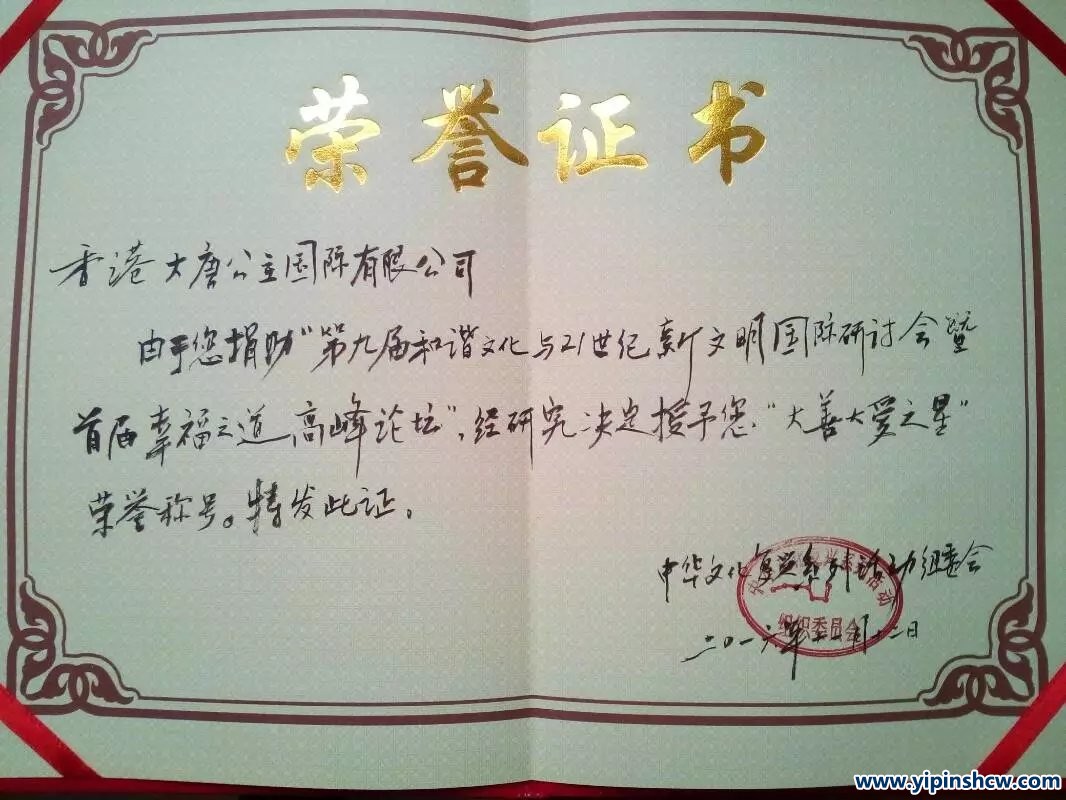 荣誉证书
香港大唐公主国际有限公司
由于您捐助“第九届和谐文化与21世纪新文明国际研讨会暨
首届幸福之道高峰论坛”,经研究决定授予您“大善大爱之星”
荣誉称号。特发此证。
中华文化复兴系列活动组委会
活动
组织委员会
二〇一六年十二日
www.yipinshcw.com